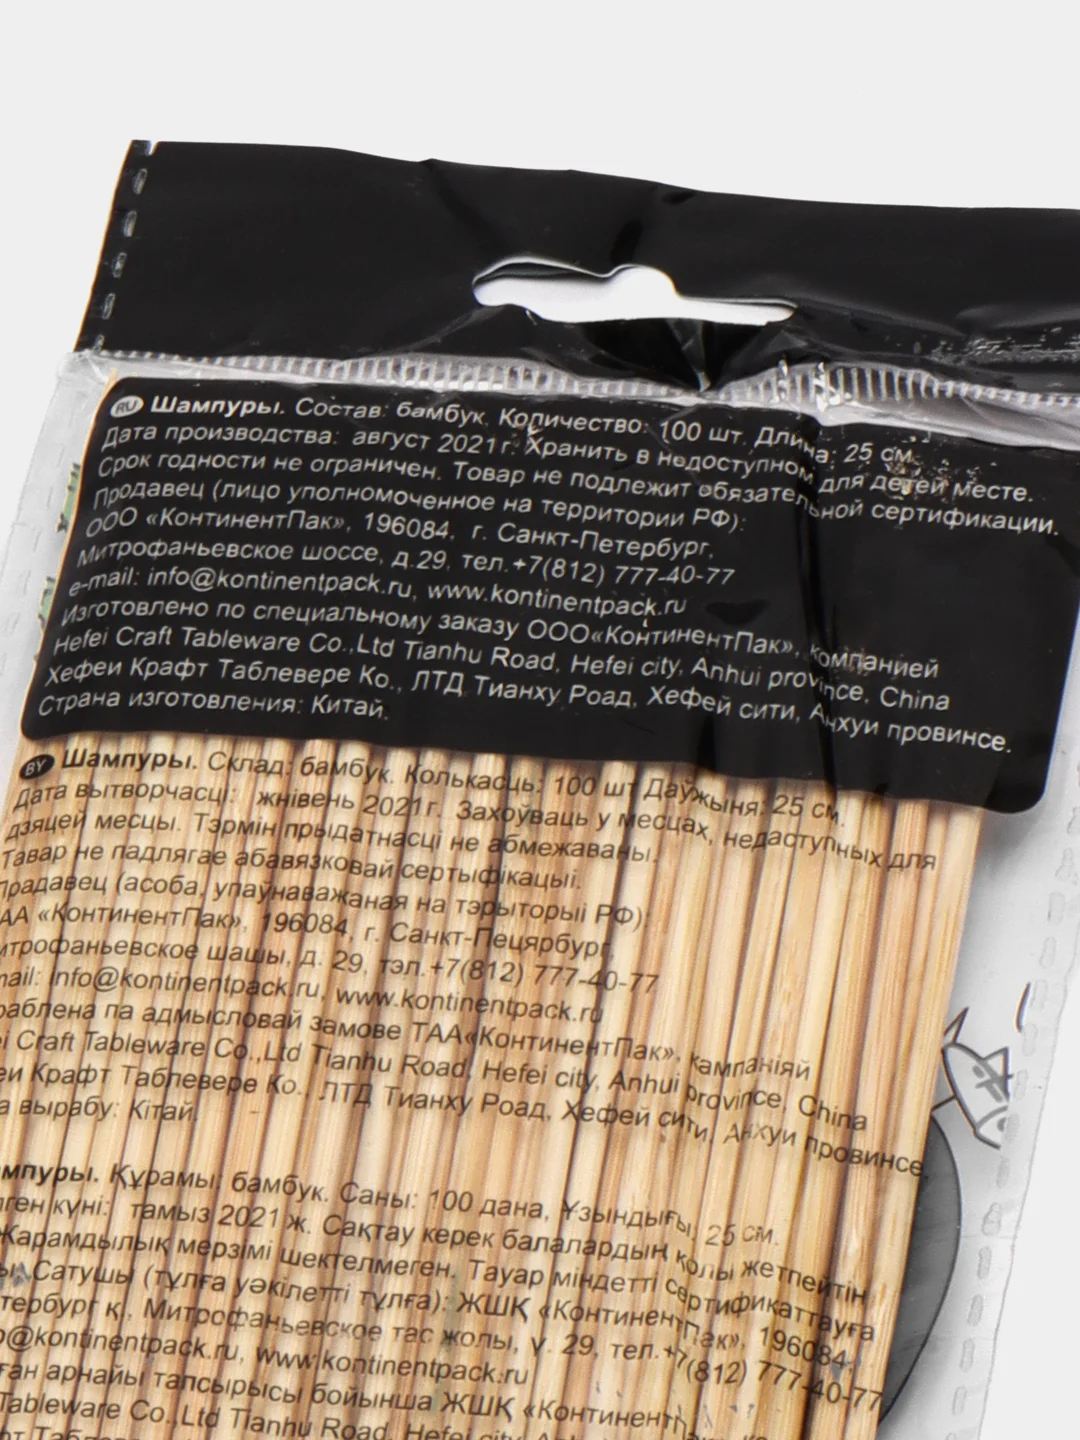 RU Шампуры. Состав: бамбук. Количество: 100 шт. Длина: 25 см.
Дата производства: август 2021г. Хранить в недоступном для детей месте.
Срок годности не ограничен. Товар не подлежит обязательной сертификации.
Продавец (лицо уполномоченное на территории РФ):
ООО «КонтинентПак», 196084, г. Санкт-Петербург,
Митрофаньевское шоссе, д.29, тел.+7(812) 777-40-77
e-mail: info@kontinentpack.ru, www.kontinentpack.ru
Изготовлено по специальному заказу ООО«КонтинентПак», компанией
Hefei Craft Tableware Co.,Ltd Tianhu Road, Hefei city, Anhui province, China
Хефеи Крафт Таблевере Ко., ЛТД Тианху Роад, Хефей сити, Анхуи провинсе.
Страна изготовления: Китай.
BY Шампуры. Склад: бамбук. Колькасць: 100 шт Даўжыня: 25 см.
Дата вытворчасці: жнівень 2021г. Захоўваць у месцах, недаступных для
дзяцей месцы. Тэрмін прыдатнасці не абмежаваны.
Тавар не падлягае абавязковай сертыфікацыі.
Прадавец (асоба, упаўнаважаная на тэрыторыі РФ):
АА «КонтинентПак», 196084, г. Санкт-Пецярбург,
итрофаньевское шашы, д. 29, тэл.+7(812) 777-40-77
mail: info@kontinentpack.ru, www.kontinentpack.ru
раблена па адмысловай замове ТАА«КонтинентПак», кампаніяй
ei Craft Tableware Co.,Ltd Tianhu Road, Hefei city, Anhui province, China
еи Крафт Таблевере Ко., ЛТД Тианху Роад, Хефей сити, Анхуи провинсе.
а вырабу: Кітай.
мпуры. Құрамы: бамбук. Саны: 100 дана, Ұзындығы, 25 см.
лген күні: тамыз 2021 ж. Сақтау керек балалардың қолы жетпейтін
Жарамдылық мерзімі шектелмеген. Тауар міндетті сертификаттауға
ы. Сатушы (тұлға уәкілетті тұлға): ЖШҚ «КонтинентПак», 196084,
тербург қ., Митрофаньевское тас жолы, ү. 29, тел.+7(812) 777-40-77
o@kontinentpack.ru, www.kontinentpack.ru
ған арнайы тапсырысы бойынша ЖШҚ «Континент
Tableware Co.,Ltd Tianhu Road, Hefei